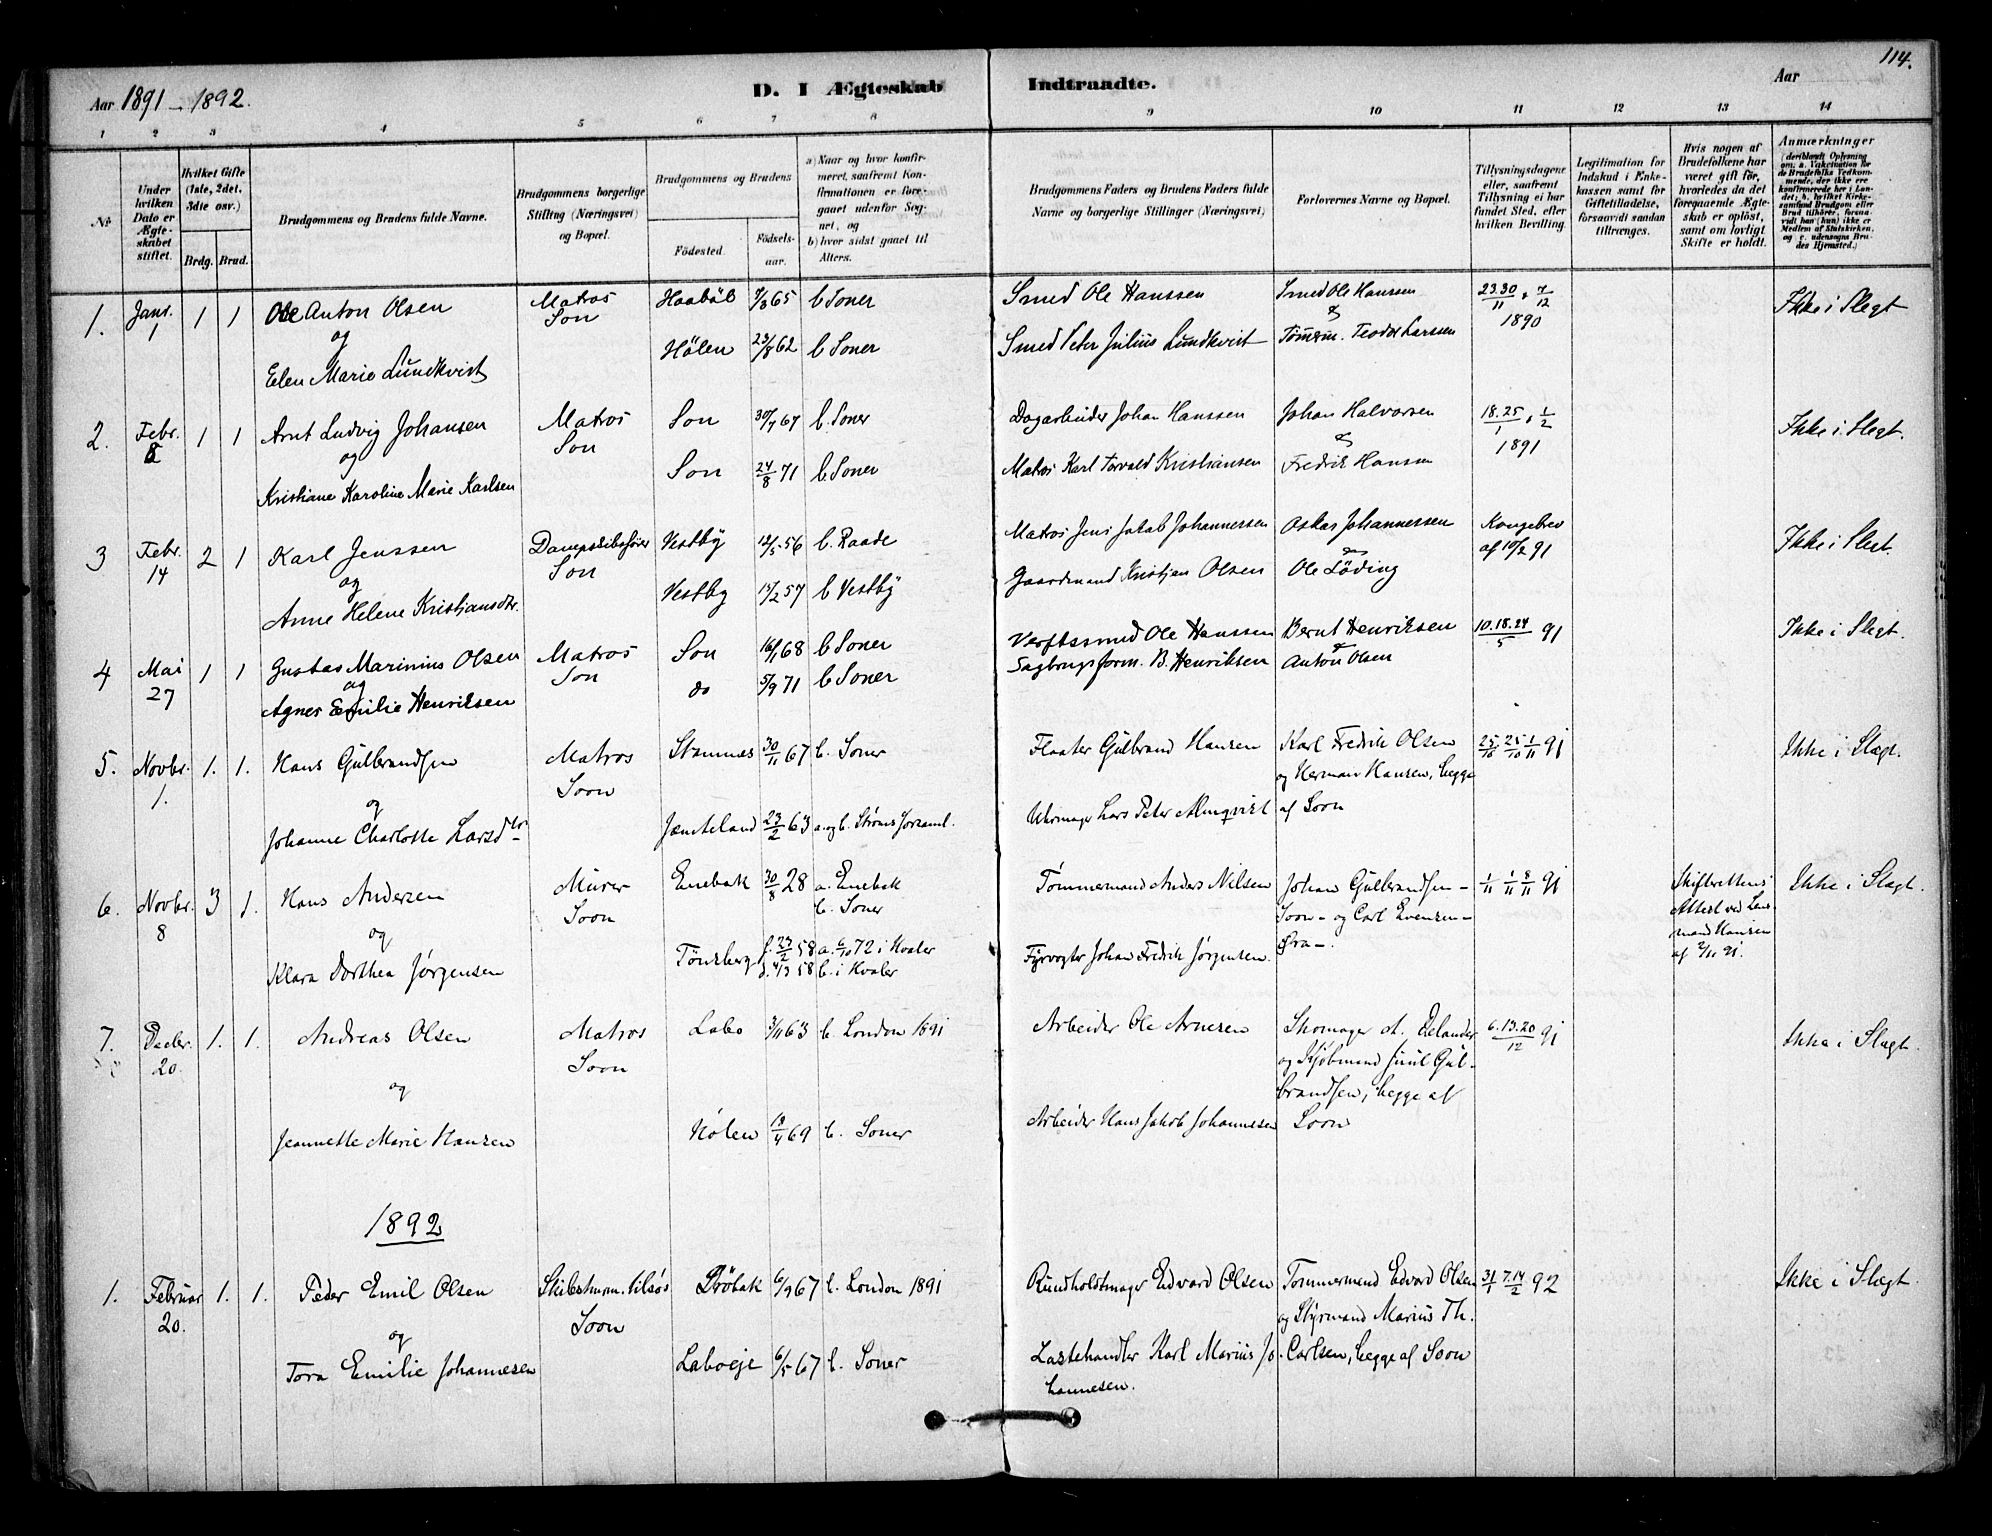 114.
Aar 1891 - 1892. D. I Ægteskab Indtraadte. Aar
1 2 3 4 5 6 7 8 9 10 11 12 13 14
№
Under hvilken Dato er Ægteskabet stiftet.
Hvilket Gifte (1ste, 2det, 3die osv.)
Brdg. Brud.
Brudgommens og Brudens fulde Navne.
Brudgommens borgerlige Stilling (Næringsvei) og Bopæl.
Brudgommens og Brudens
Födested. Födsels-aar.
a) Naar og hvor konfirmeret, saafremt Konfirmationen er foregaaet udenfor Sognet, og
b) hvor sidst gaaet til Alters.
Brudgommens Faders og Brudens Faders fulde Navne og borgerlige Stillinger (Næringsvei)
Forlovernes Navne og Bopæl.
Tillysningsdagene eller, saafremt Tillysning ei har fundet Sted, efter hvilken Bevilling.
Legitimation for Indskud i Enkekassen samt for Giftetilladelse, forsaavidt saadan tiltrænges.
Hvis nogen af Brudefolkene har været gift för, hvorledes da det foregaaende Ægteskab er oplöst, samt om lovligt Skifte er holdt.
Anmærkninger
(deriblandt Oplysning om: a. Vakcination for de Brudefolks Vedkommende, der ikke ere konfirmerede her i Landet; b. hvilket Kirkesamfund Brudgom eller Brud tilhörer, forsaavidt han (hun) ikke er Medlem af Statskirken, og c. udensogns Brudes Hjemsted.)
1. Janr. 1 1 1 Ole Anton Olsen Matros Son Haabøl 7/8 65 b Soner Smed Ole Hanssen Smed Ole Hanssen 23.30/11 + 7/12 1890 Ikke i Slegt
og
Elen Marie Lundkvist Hölen 23/8 62 b Soner Smed Peter Julius Lundkvist & Tömerm. Teodor Larssen
2. Febr. 8 1 1 Arnt Ludvig Johansen Matros Son Son 30/7 67 b. Soner Dagarbeider Johan Hanssen Johan Halvorsen 18.25/1 + 1/2 1891 Ikke i Slegt.
og
Kristiane Karoline Marie Karlsen Son 24/8 71 b Soner Matros Karl Torvald Kristiansen & Fredrik Hansen
3 Febr. 14 2 1 Karl Jenssen Dampskibsförer Son Vestby 12/5 56 b. Raade Matros Jens Jakob Johannessen Oskar Johannessen Kongebrev af 10/2 91 Ikke i Slegt.
og
Anne Helene Kristiansdtr. Vestby 15/2 57 b Vestby Gaardmand Kristjen Olsen & Ole Löding
4 Mai 27 1 1 Gustav Marinius Olsen Matros Son Son 16/1 68 b Soner Verftssmed Ole Hanssen Bernt Henriksen 10.18.24/5 91 Ikke i Slegt.
og
Agnes Emilie Henriksen do 5/9 71 b Soner Sagbrugsform. B. Henriksen & Anton Olsen
5. Novbr. 1. 1. 1. Hans Gulbrandsen Matros Soon Stamnes 30/11 67 b. Soner Flaater Gulbrand Hansen Karl Fredrik Olsen 25/10 1/11 91 Ikke i Slægt.
og
Johanne Charlotte Larsdtr Jæmteland 23/2 63 a. og b. Ströms Forsaml. Uhrmager Lars Peter Almqvist og Herman Hansen, begge af Soon
6. Novbr. 8 3 1. Hans Andersen Murer Soon Enebak 30/8 28 a. Enebak b. Soner Tömmermand Anders Nilsen Johan Gulbrandsen - Soon - og Carl Evensen - 1/11 8/11 91 Skifterettens Attest ved Lensmand Hansen af 2/11 91. Ikke i Slægt.
og
Klara Dorthea Jörgensen Tönsberg f. 27/2 58 d. 4/3 58 a. 6/10 72 i Hvaler b. i Hvaler Fyrvogter Johan Fredrik Jörgensen.
7. Decbr. 20. 1. 1. Andreas Olsen Matros Soon Labo 3/11 63 b. London 1891 Arbeider Ole Arnesen Skomager A. Delander 6.13.20/12 91 Ikke i Slægt.
og
Jeannette Marie Hansen Hölen 18/4 69 b. Soner Arbeider Hans Jakob Johannesen og Kjöbmand Juul Gulbrandsen, begge af Soon
1892
1. Februar 20. 1. 1. Peder Emil Olsen Skibsturm. tilsøs Soon Dröbak 6/9 67 b. London 1891 Rundholdtmager Edvard Olsen Tommermand Edvard Olsen 31/1 7.14/2 92 Ikke i Slægt
og
Tora Emilie Johannesen Laboeje 6/5 67 b. Soner Lastehandler Karl Marius Johannesen. og Styrmand Marius Th. Carlsen, begge af Soon